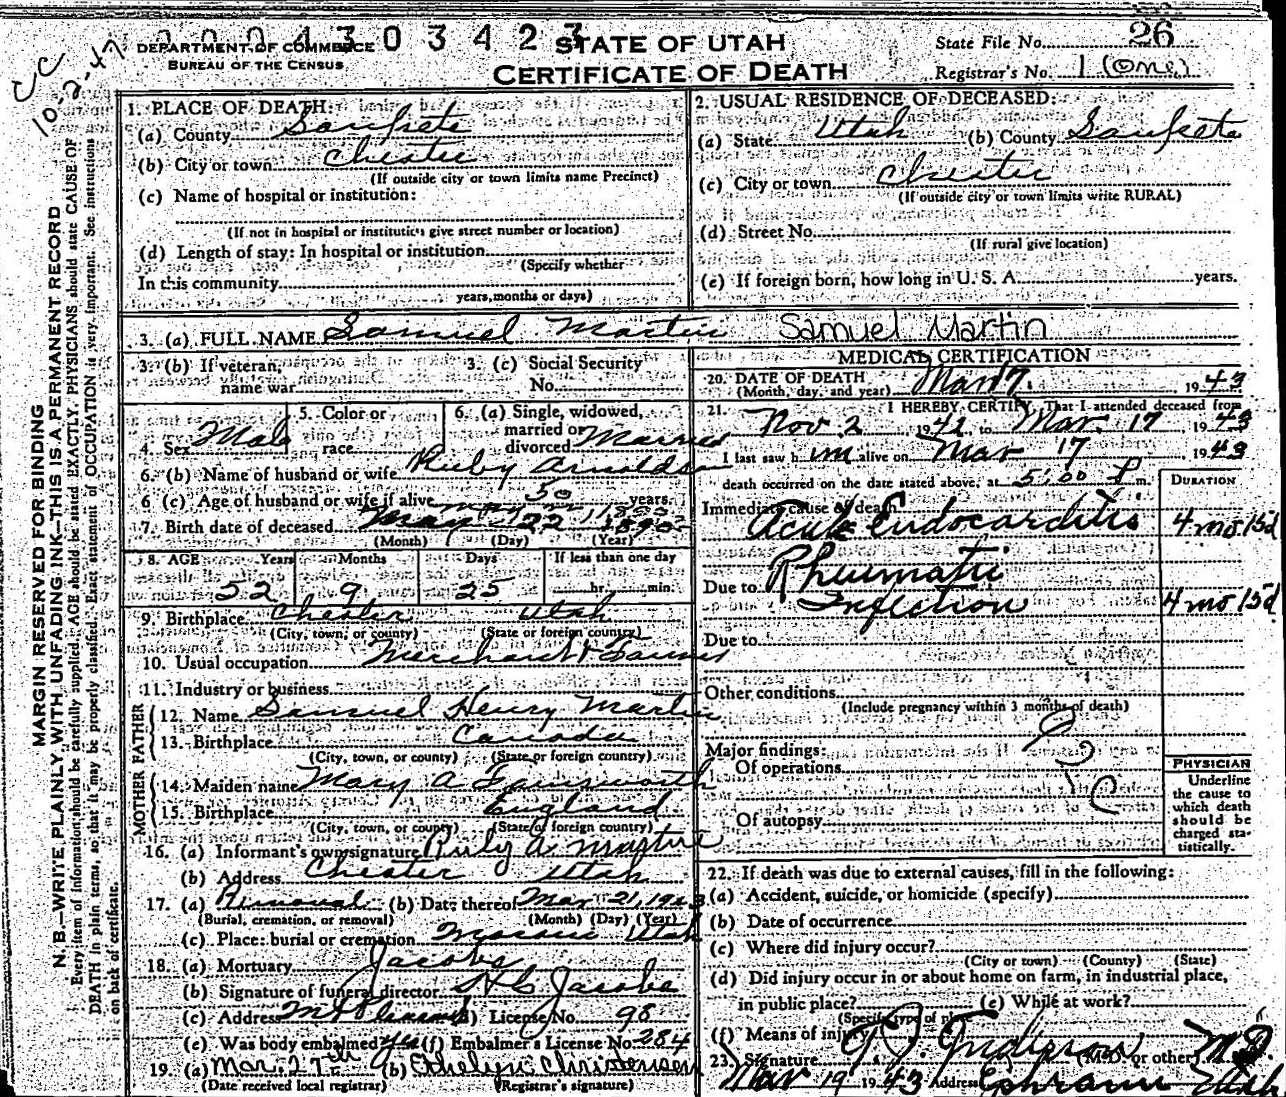 CC
10-2-47
0004303423
DEPARTMENT OF COMMERCE
BUREAU OF THE CENSUS
STATE OF UTAH
CERTIFICATE OF DEATH
State File No. 26
Registrar's No. 1 (One)
MARGIN RESERVED FOR BINDING
N. B.—WRITE PLAINLY WITH UNFADING INK—THIS IS A PERMANENT RECORD
Every item of information should be carefully supplied. AGE should be stated EXACTLY. PHYSICIANS should state CAUSE OF
DEATH in plain terms, so that it may be properly classified. Exact statement of OCCUPATION is very important. See instructions
on back of certificate.
1. PLACE OF DEATH:
(a) County Sanpete
(b) City or town Chester
(If outside city or town limits name Precinct)
(c) Name of hospital or institution:
(If not in hospital or institution give street number or location)
(d) Length of stay: In hospital or institution
(Specify whether
In this community
years, months or days)
2. USUAL RESIDENCE OF DECEASED:
(a) State Utah (b) County Sanpete
(c) City or town Chester
(If outside city or town limits write RURAL)
(d) Street No.
(If rural give location)
(e) If foreign born, how long in U. S. A. years.
3. (a) FULL NAME Samuel Martin Samuel Martin
3. (b) If veteran, name war
3. (c) Social Security No.
4. Sex Male
5. Color or race
6. (a) Single, widowed, married or divorced Married
6. (b) Name of husband or wife Ruby Arnoldson
6 (c) Age of husband or wife if alive 50 years.
7. Birth date of deceased May 22 1890
(Month) (Day) (Year)
8. AGE Years Months Days If less than one day
52 9 25 hr. min.
9. Birthplace Chester Utah
(City, town, or county) (State or foreign country)
10. Usual occupation Merchant & Farmer
11. Industry or business
FATHER
12. Name Samuel Henry Martin
13. Birthplace Canada
(City, town, or county) (State or foreign country)
MOTHER
14. Maiden name Mary A
15. Birthplace England
(City, town, or county) (State or foreign country)
16. (a) Informant's own signature Ruby A. Martin
(b) Address Chester Utah
17. (a) Removal (b) Date thereof Mar 21, 1943
(Burial, cremation, or removal) (Month) (Day) (Year)
(c) Place: burial or cremation Moroni Utah
18. (a) Mortuary Jacobs
(b) Signature of funeral director H C Jacobs
(c) Address Mt Pleasant (d) License No. 98
(e) Was body embalmed yes (f) Embalmer's License No. 284
19. (a) Mar. 27th (b) Ethelyn Christensen
(Date received local registrar) (Registrar's signature)
MEDICAL CERTIFICATION
20. DATE OF DEATH Mar 17. 1943
(Month, day, and year)
21. I HEREBY CERTIFY, That I attended deceased from
Nov 2 1942, to Mar. 17 1943
I last saw him alive on Mar 17 1943
death occurred on the date stated above, at 5:00 P m.
DURATION
Immediate cause of death
Acute Endocarditis 4 mo 15d
Due to Rheumatic
Infection 4 mo 15d.
Due to
Other conditions
(Include pregnancy within 3 months of death)
Major findings:
Of operations
Of autopsy
PHYSICIAN
Underline
the cause to
which death
should be
charged sta-
tistically.
22. If death was due to external causes, fill in the following:
(a) Accident, suicide, or homicide (specify)
(b) Date of occurrence
(c) Where did injury occur?
(City or town) (County) (State)
(d) Did injury occur in or about home on farm, in industrial place,
in public place? (e) While at work?
(Specify type of place)
(f) Means of injury
23. Signature Anderson (M. D. or other) M.D.
Mar 19 1943 Address Ephraim Utah